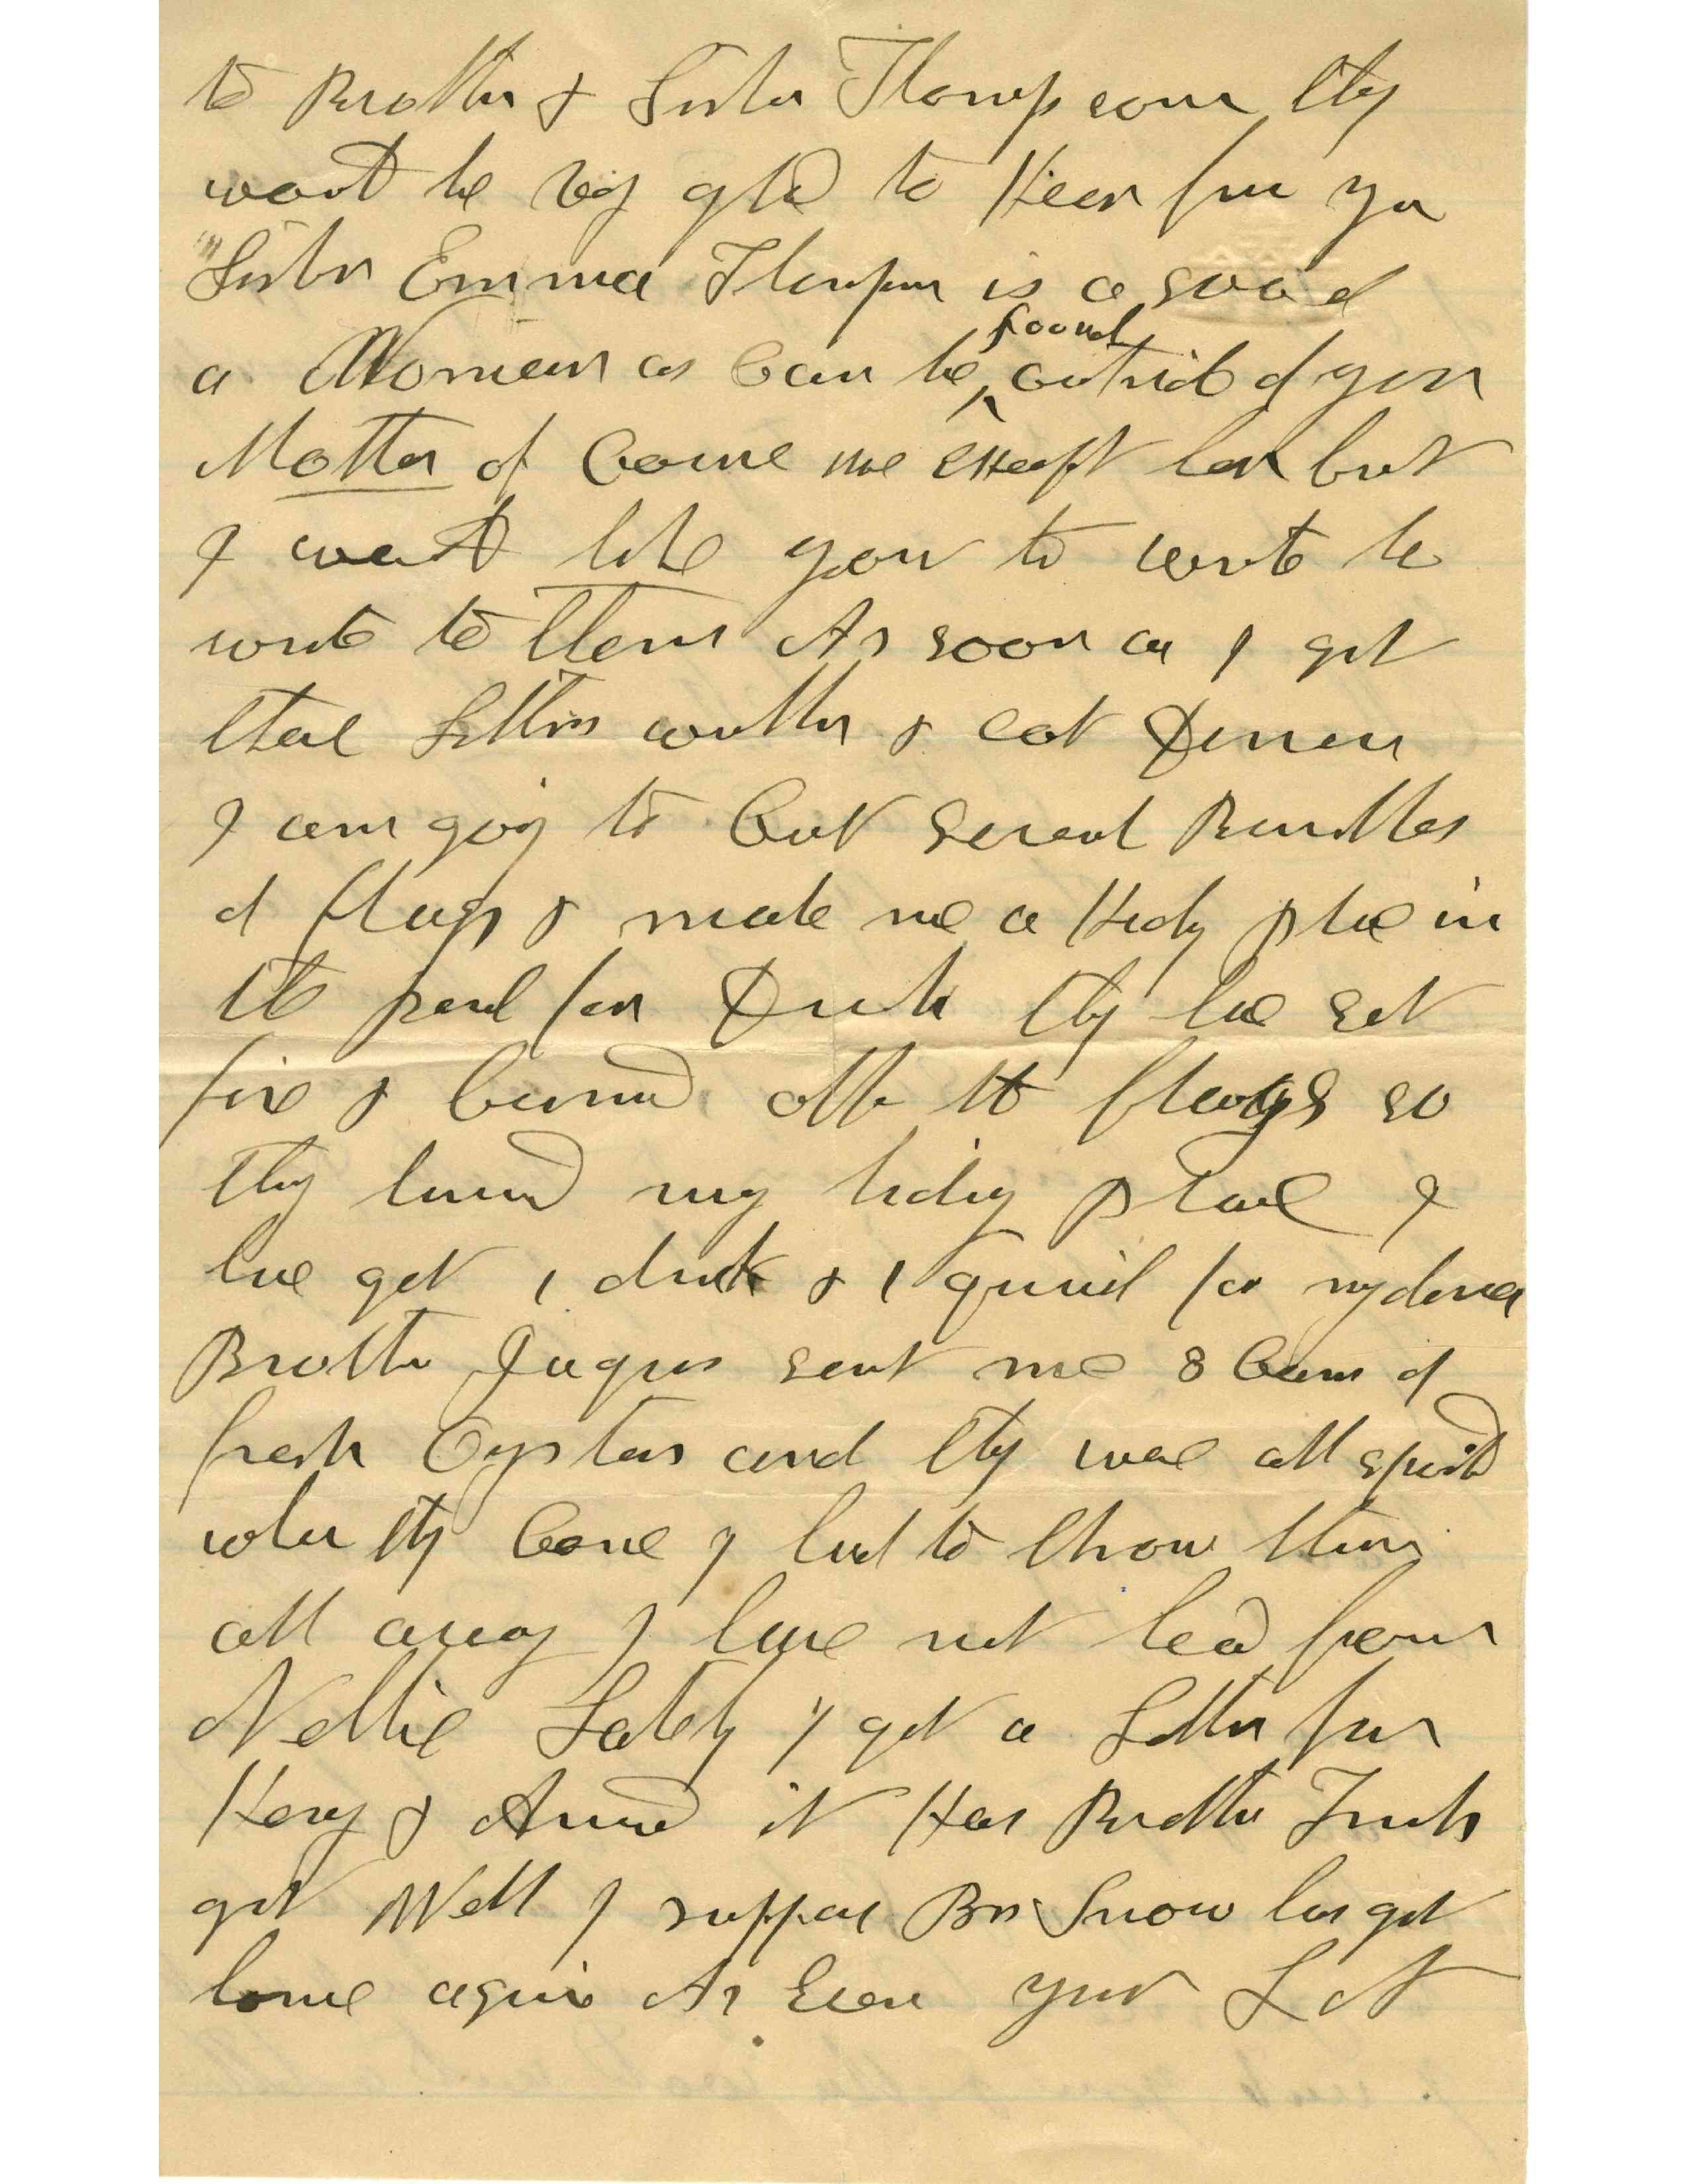 to Brother & Sister Thompson they
would be very glad to Hear from you
Sister Emma Thompson is a good
a Woman as Can be found outside of your
Mother of Course we except her but
I would like you to write to
write to them As soon as I get
these Letters written & eat Dinner
I am going to Cut several Bundles
of flags & make me a Hidy place in
the pond for Ducks they have set
fire & burned off the flags so
they burned my hidy place I
have got 1 duck & 1 squirrel for my dinner
Brother Jaques sent me 8 Cans of
fresh Oysters and they were all spoiled
when they Come I had to throw them
all away I have not heard from
Nellie Lately I got a Letter from
Henry & Answered it Has Brother
got Well I suppose Bro Snow has got
home again As Ever your